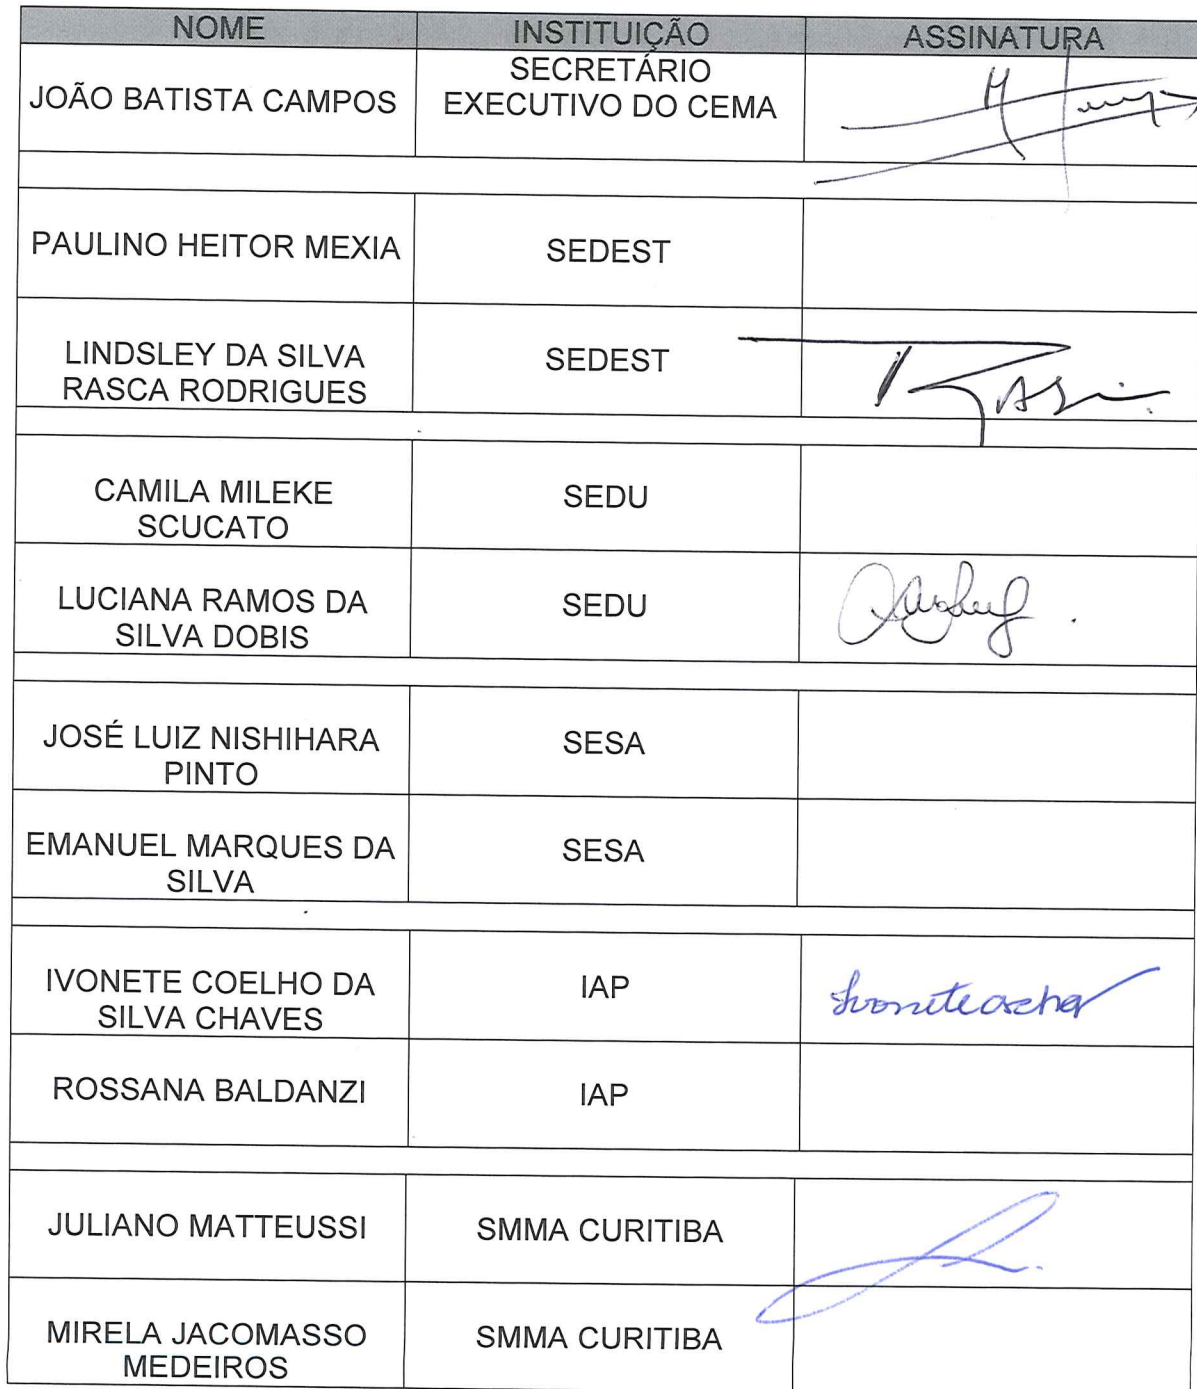 NOME INSTITUIÇÃO ASSINATURA
JOÃO BATISTA CAMPOS
SECRETÁRIO
EXECUTIVO DO CEMA
PAULINO HEITOR MEXIA SEDEST
LINDSLEY DA SILVA
RASCA RODRIGUES
SEDEST
CAMILA MILEKE
SCUCATO
SEDU
LUCIANA RAMOS DA
SILVA DOBIS
SEDU
JOSÉ LUIZ NISHIHARA
PINTO
SESA
EMANUEL MARQUES DA
SILVA
SESA
IVONETE COELHO DA
SILVA CHAVES
IAP
ROSSANA BALDANZI IAP
JULIANO MATTEUSSI SMMA CURITIBA
MIRELA JACOMASSO
MEDEIROS
SMMA CURITIBA